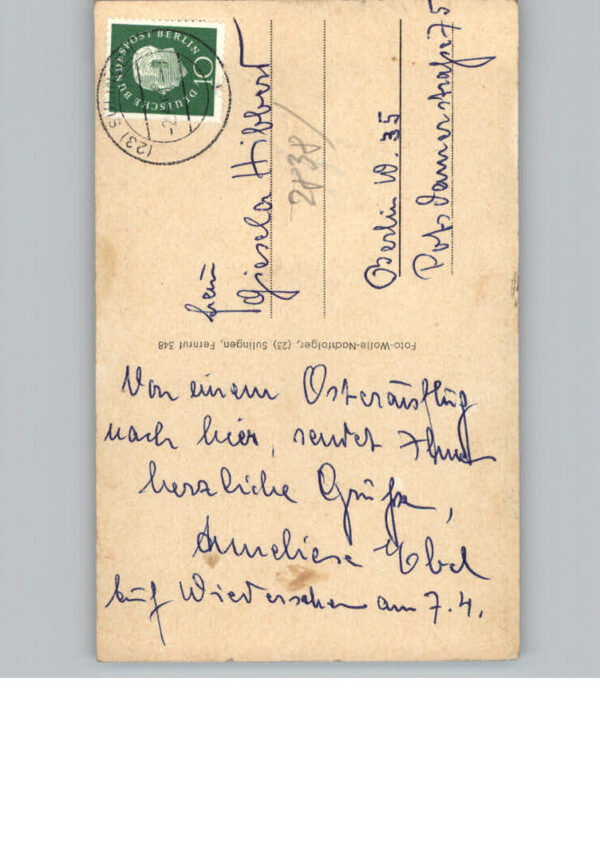 DEUTSCHE BUNDESPOST BERLIN
10
(23)
Frau
Giesela Hibbert
2838/
Berlin W. 35
Potsdamerstraße 75
Foto-Wolte-Nachfolger, (23) Sulingen, Fernruf 348
Von einem Osterausflug
nach hier, sendet Ihnen
herzliche Grüße,
Anneliese Ebel
Auf Wiedersehen am 7.4.